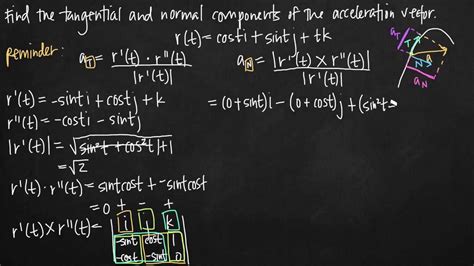 Find the tangential and normal components of the acceleration vector.
r(t) = costi + sintj + tk
reminder:
a_T = r'(t) · r''(t) / |r'(t)|
a_N = |r'(t) × r''(t)| / |r'(t)|
a_T T N a a_N
r'(t) = -sinti + costj + k
r''(t) = -costi - sintj
|r'(t)| = √(sin²t + cos²t + 1)
= √2
r'(t) · r''(t) = sintcost + -sintcost
= 0
r'(t) × r''(t) =
+ - +
i j k
-sint cost 1
-cost -sint 0
= (0+sint)i - (0+cost)j + (sin²t